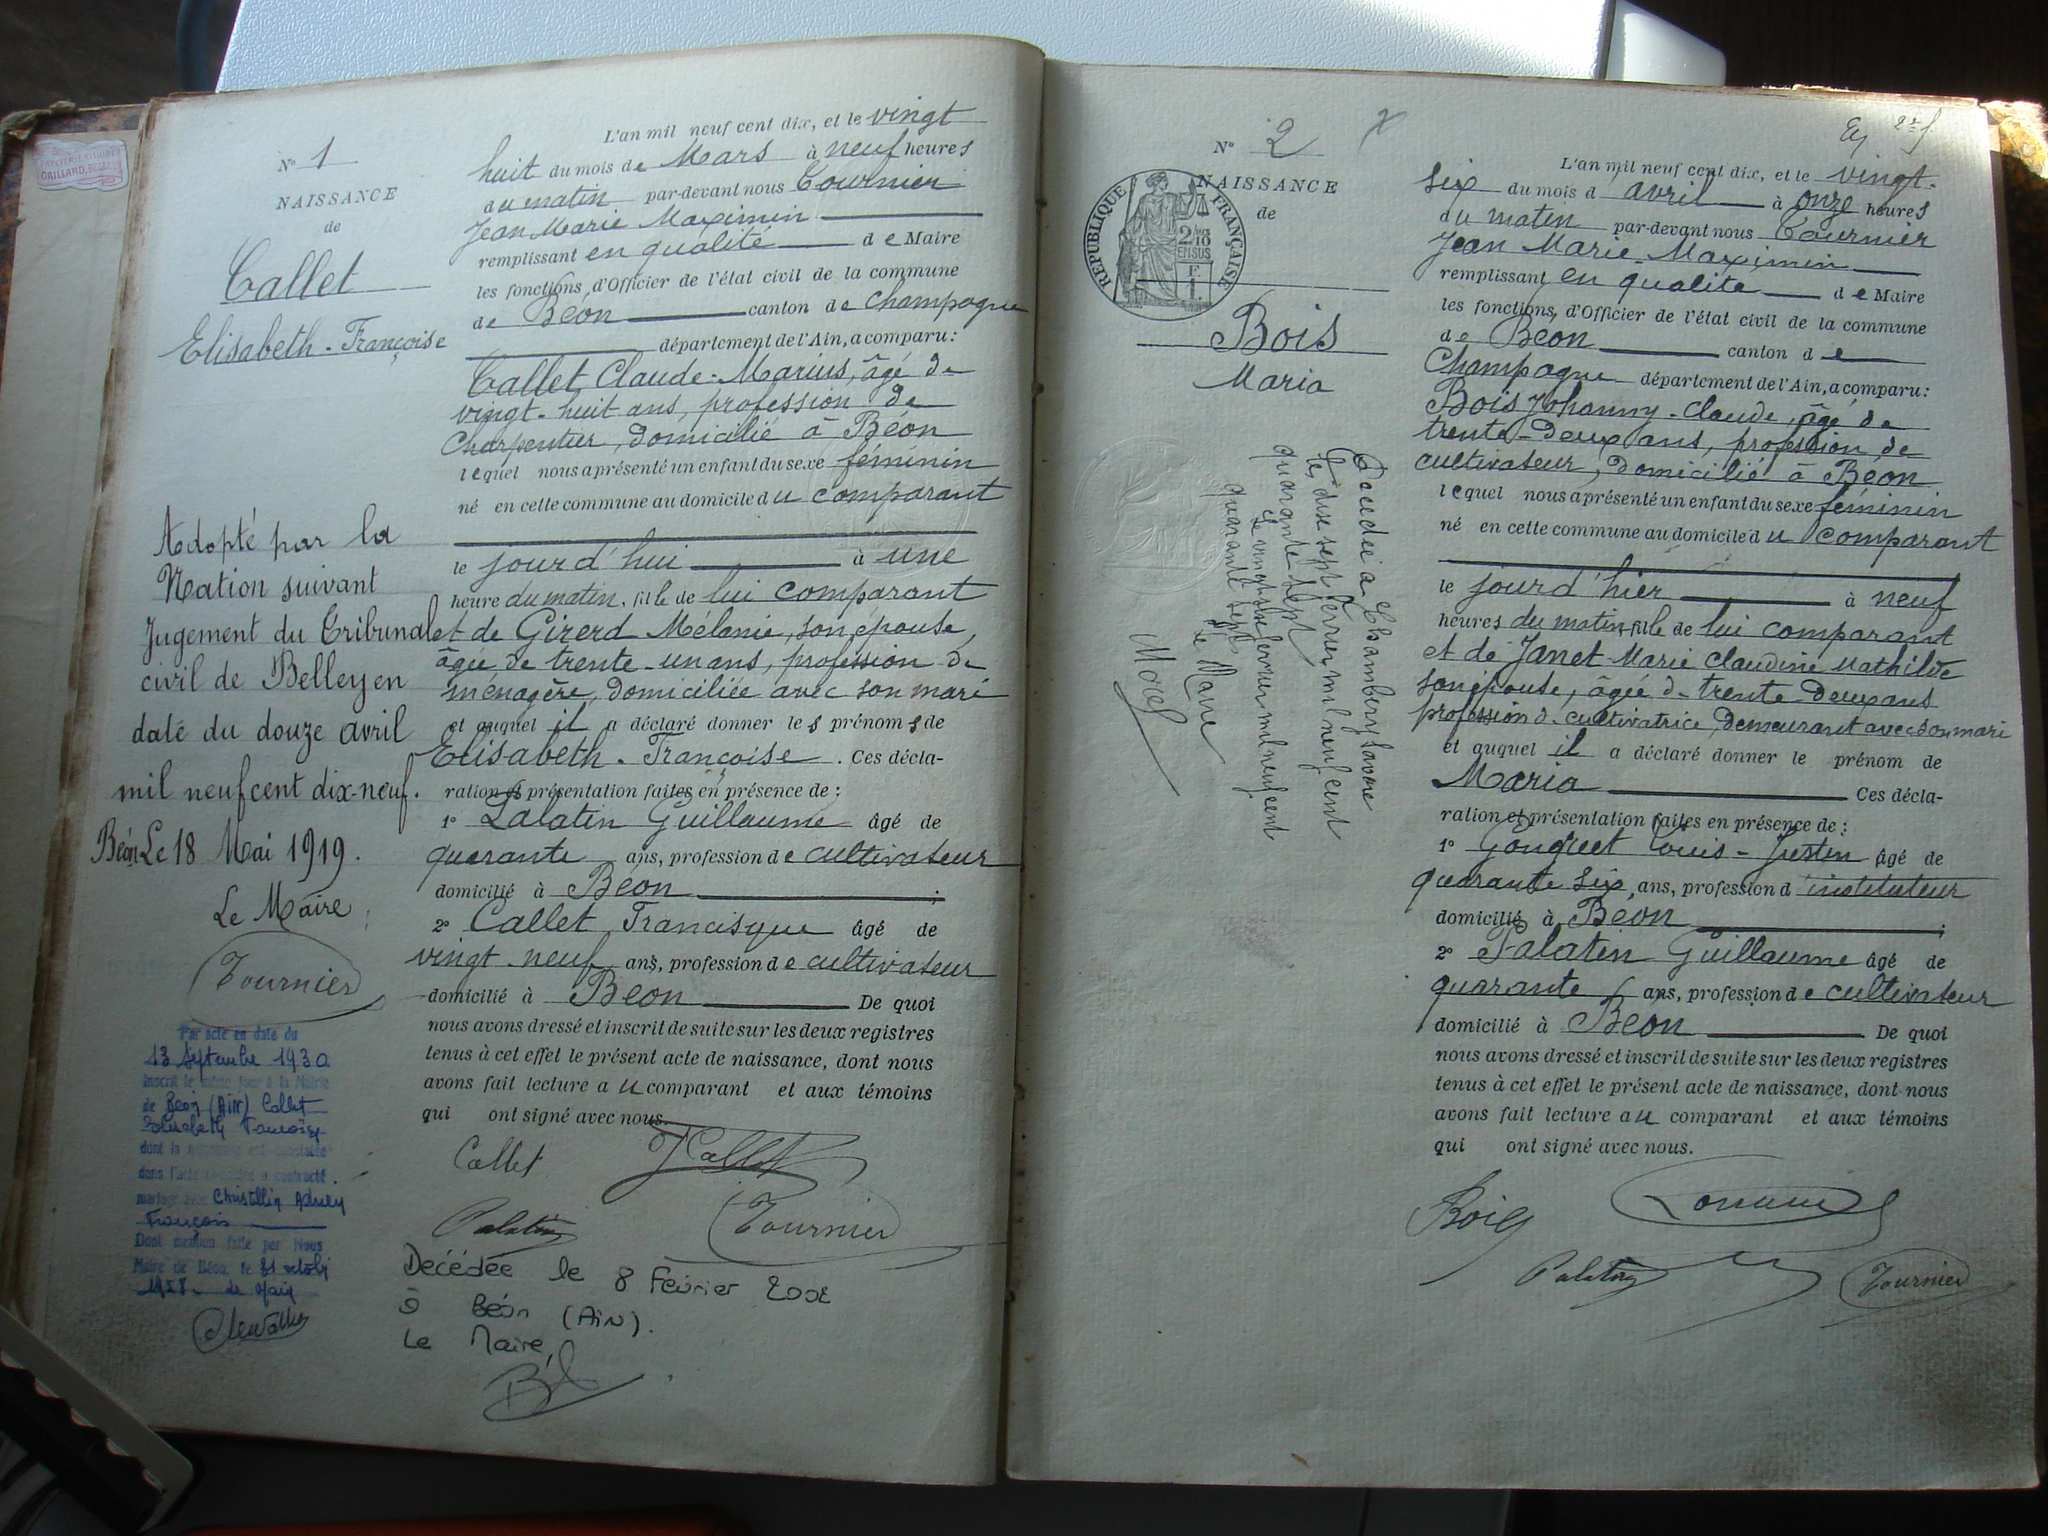 N° 1
NAISSANCE
de
Callet
Elisabeth-Françoise
Adopté par la
Nation suivant
Jugement du Tribunal
civil de Belley en
date du douze avril
mil neuf cent dix-neuf.
Béon Le 18 Mai 1919.
Le Maire
Tournier
Par acte en date du
13 Septembre 1930
inscrit le même jour à la Mairie
de Béon (Ain) Callet
Elisabeth Françoise
dont la naissance est constatée
dans l'acte ci-contre a contracté
mariage avec Christillin
François
Dont mention faite par Nous
Maire de Béon, le 31 octobre
1958. le Maire
L'an mil neuf cent dix, et le vingt
huit du mois de Mars à neuf heures
du matin par-devant nous Tournier
Jean Marie Maximin
remplissant en qualité de Maire
les fonctions d'Officier de l'état civil de la commune
de Béon canton de Champagne
département de l'Ain, a comparu:
Callet Claude-Marius, âgé de
vingt-huit ans, profession de
Charpentier, domicilié à Béon
lequel nous a présenté un enfant du sexe féminin
né en cette commune au domicile du comparant
le jourd'hui à une
heure du matin, fille de lui comparant
et de Girerd Mélanie, son épouse,
âgée de trente-un ans, profession de
ménagère, domiciliée avec son mari
et auquel il a déclaré donner les prénoms de
Elisabeth-Françoise. Ces décla-
ration et présentation faites en présence de:
1° Palatin Guillaume âgé de
quarante ans, profession de cultivateur
domicilié à Béon;
2° Callet Francisque âgé de
vingt neuf ans, profession de cultivateur
domicilié à Béon De quoi
nous avons dressé et inscrit de suite sur les deux registres
tenus à cet effet le présent acte de naissance, dont nous
avons fait lecture au comparant et aux témoins
qui ont signé avec nous.
Callet F Callet
Palatin Tournier
Décédée le 8 Février 2002
à Béon (Ain).
Le Maire,
N° 2
NAISSANCE
de
RÉPUBLIQUE FRANÇAISE
2/10
EN SUS
Bois
Maria
Décédée à Chambéry Savoie
le dix sept Février mil neuf cent
quarante sept
Le vingt février mil neuf cent
quarante sept
Le Maire
Morel
2e f.
L'an mil neuf cent dix, et le vingt-
six du mois d avril à onze heures
du matin par-devant nous Tournier
Jean Marie Maximin
remplissant en qualité de Maire
les fonctions, d'Officier de l'état civil de la commune
de Béon canton de
Champagne département de l'Ain, a comparu:
Bois Johanny-Claude, âgé de
trente-deux ans, profession de
cultivateur, domicilié à Béon
lequel nous a présenté un enfant du sexe féminin
né en cette commune au domicile du comparant
le jourd'hier à neuf
heures du matin, fille de lui comparant
et de Janet Marie Claudine Mathilde
son épouse, âgée de trente-deux ans
profession de cultivatrice, demeurant avec son mari
et auquel il a déclaré donner le prénom de
Maria Ces décla-
ration et présentation faites en présence de:
1° Louis-Justin âgé de
quarante six ans, profession d'instituteur
domicilié à Béon;
2° Palatin Guillaume âgé de
quarante ans, profession de cultivateur
domicilié à Béon De quoi
nous avons dressé et inscrit de suite sur les deux registres
tenus à cet effet le présent acte de naissance, dont nous
avons fait lecture au comparant et aux témoins
qui ont signé avec nous.
Bois
Palatin Tournier